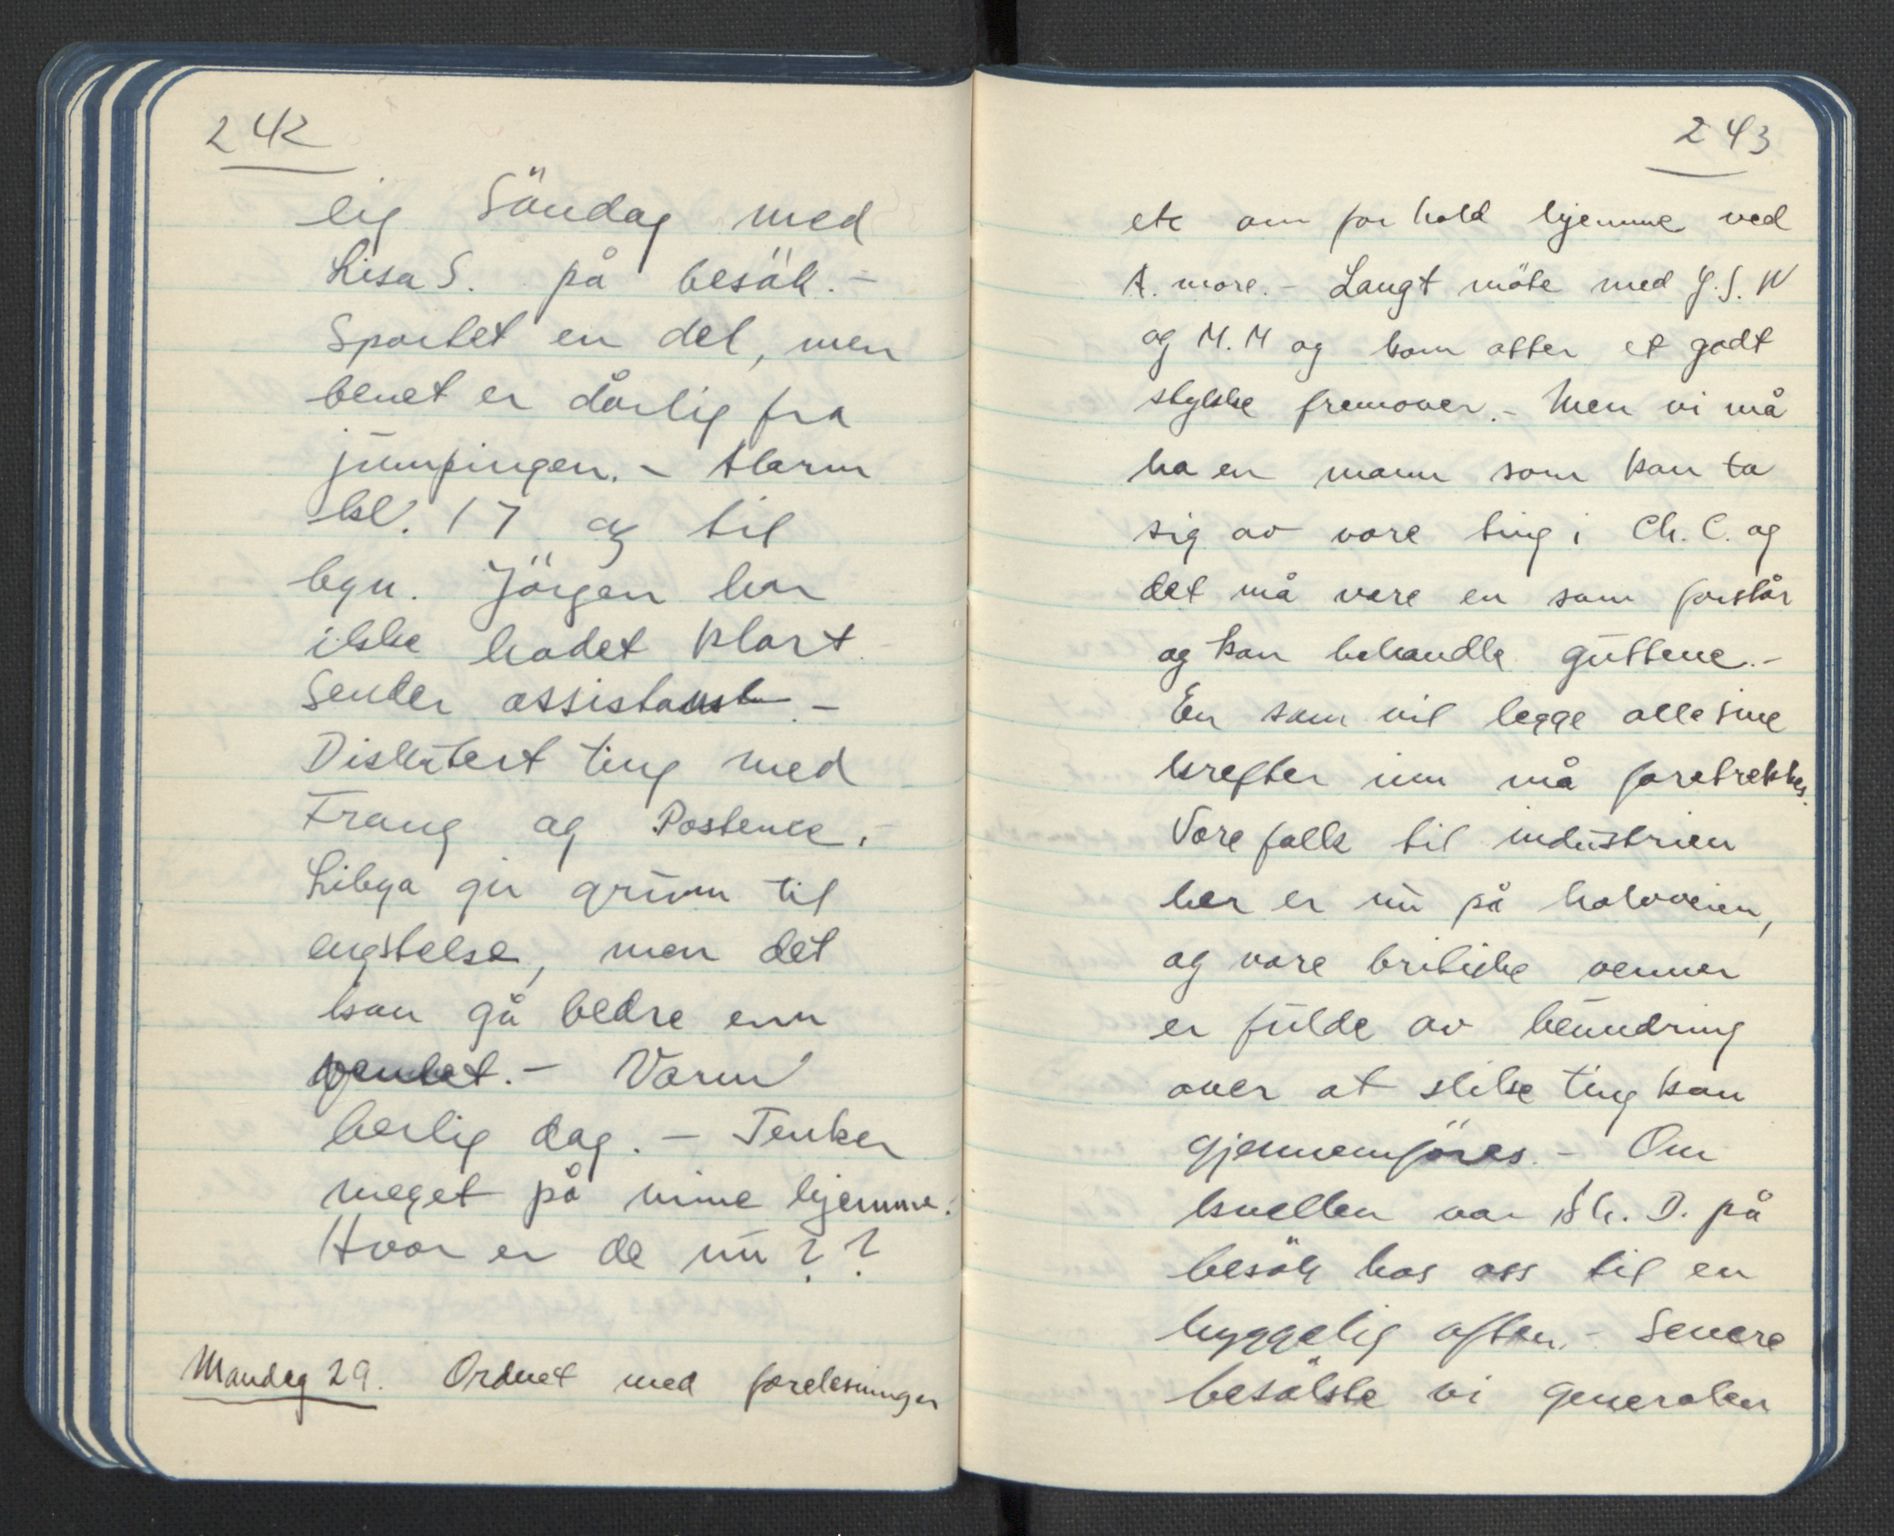 242
lig Söndag med
Lisa S. på besök. -
Sportet en del, men
benet er dårlig fra
jumpingen. - Alarm
kl. 17 og til
byn. Jörgen har
ikke hodet klart.
Sender assistanse. -
Diskutert ting med
Frang og Postence. -
Libya gir grunn til
engstelse, men det
kan gå bedre enn
ventet. - Varm
herlig dag. - Tenker
meget på mine hjemme. -
Hvor er de nu??
Mandag 29. Ordnet med forelesninger
243
etc om forhold hjemme ved
A. more. - Langt möte med J.S.W
og M.M og kom atter et godt
stykke fremover. - Men vi må
ha en mann som kan ta
sig av vore ting i Ch. C. og
det må vere en som forstår
og kan behandle guttene. -
En som vil legge alle sine
krefter inn må foretrekkes.
Vore folk til industrien
her er nu på halvveien,
og vore britiske venner
er fulde av beundring
over at slike ting kan
gjennemföres. - Om
kvellen var Sh. D. på
besök hos oss til en
hyggelig aften. - Senere
besökte vi Generalen